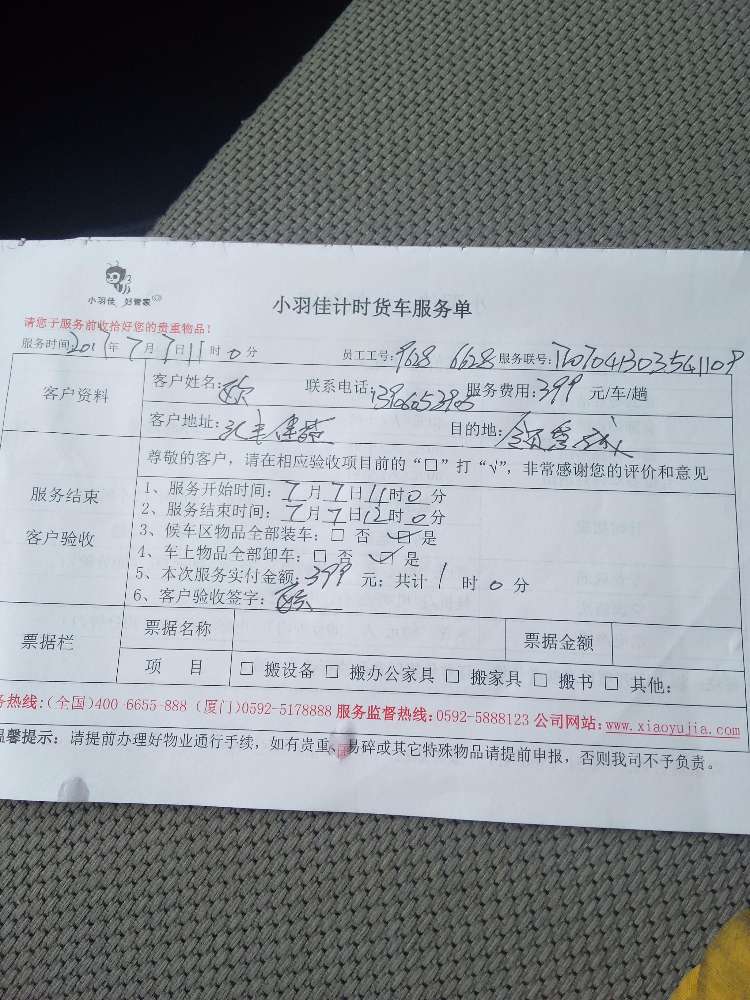 小羽佳 好管家
小羽佳计时货车服务单
请您于服务前收拾好您的贵重物品!
服务时间:2017年7月7日11时0分 员工工号:9628 6628 服务联号:
客户资料 客户姓名:欧 联系电话: 服务费用:399 元/车/趟
客户地址: 目的地:
尊敬的客户，请在相应验收项目前的“□”打“√”，非常感谢您的评价和意见
服务结束
客户验收
1、服务开始时间:7月7日11时0分
2、服务结束时间:7月7日12时0分
3、候车区物品全部装车:□ 否 ☑ 是
4、车上物品全部卸车:□ 否 ☑ 是
5、本次服务实付金额:399 元;共计1时0分
6、客户验收签字:欧
票据栏 票据名称 票据金额
项 目 □ 搬设备 □ 搬办公家具 □ 搬家具 □ 搬书 □ 其他:
务热线:(全国)400-6655-888 (厦门)0592-5178888 服务监督热线:0592-5888123 公司网站:www.xiaoyujia.com
温馨提示: 请提前办理好物业通行手续，如有贵重、易碎或其它特殊物品请提前申报，否则我司不予负责。